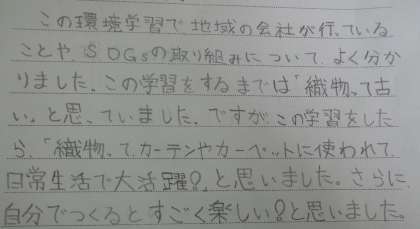 この環境学習で地域の会社が行っている
ことや、SDGsの取り組みについて、よく分か
りました。この学習をするまでは「織物って古
い。」と思っていました。ですが、この学習をした
ら、「織物って、カーテンやカーペットに使われて、
日常生活で大活躍!?」と思いました。さらに、
自分でつくるとすごく楽しい!?と思いました。